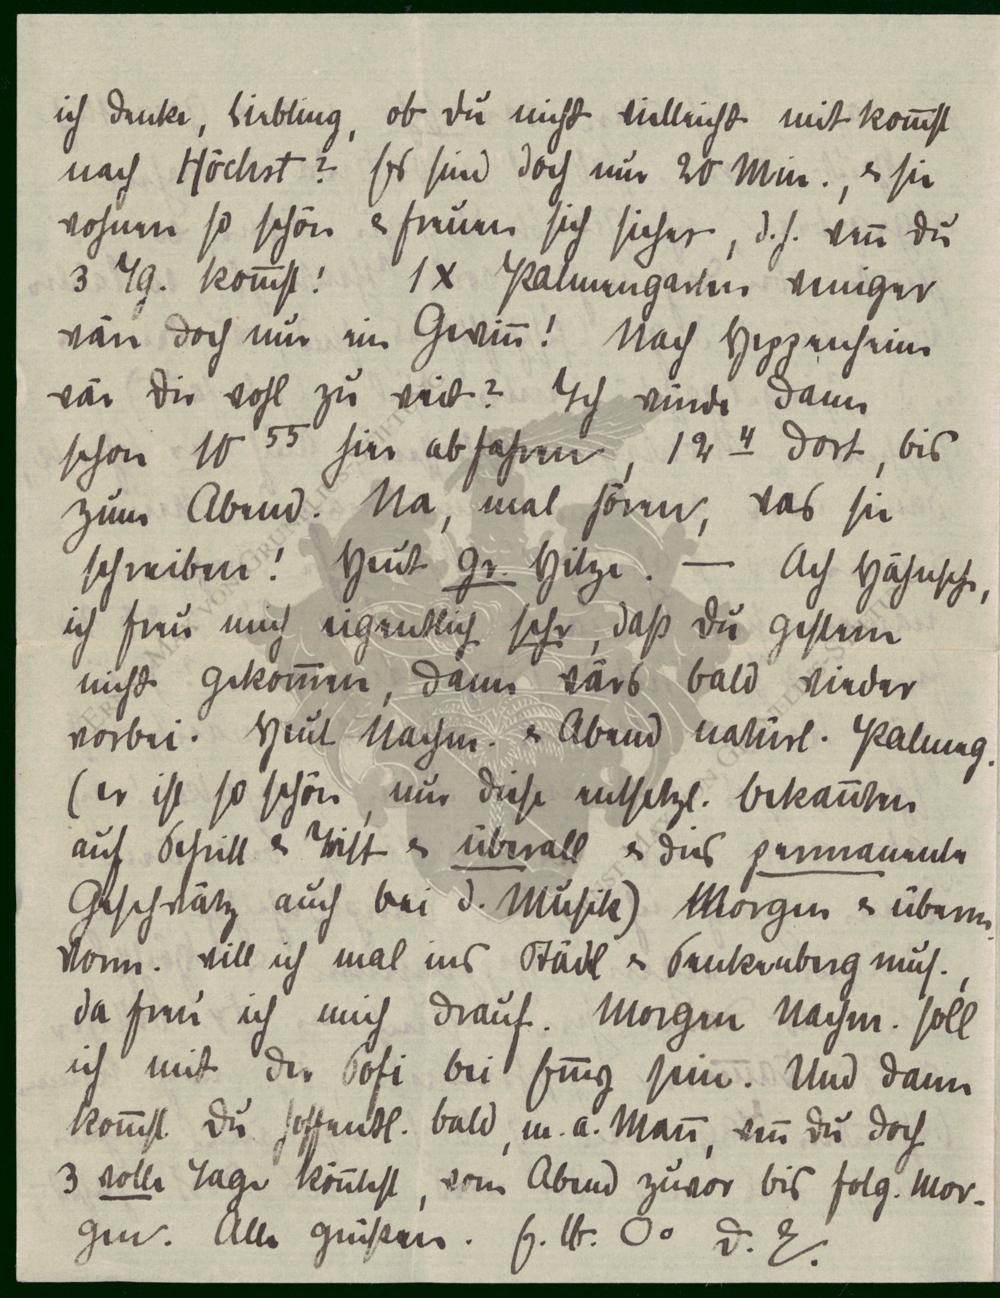 ich denke, Liebling, ob du nicht vielleicht mit kom̅st
nach Höchst? Es sind doch nur 20 Min., & sie
wohnen so schön & freuen sich sicher, d.h. wen̅ du
3 Tg. kom̅st! 1 X Palmengarten weniger
wär doch nur ein Gewin̅! Nach Heppenheim
wär dir wohl zu weit? Ich würde dann
schon 10 55 hier abfahren, 12 4 dort, bis
zum Abend. Na, mal hören, was sie
schreiben! Heut gr. Hitze. — Ach Hähnsche,
ich freu mich eigentlich sehr, daß du gestern
nicht gekom̅en, dann wärs bald wieder
vorbei. Heut Nachm. & Abend natürl. Palmeng.
(er ist so schön, nur diese entsetzl. bekan̅ten
auf Schritt & Tritt & überall & dies permanente
Geschwätz auch bei d. Musik) Morgen & überm.
Vorm. will ich mal ins Städl & Senkenberg mus.,
da freu ich mich drauf. Morgen Nachm. soll
ich mit der Sofi bei sein. Und dann
kom̅st du hoffentl. bald, m. a. Man̅, wen̅ du doch
3 volle Tage kön̅test, vom Abend zuvor bis folg. Mor-
gen. Alle grüßen. d.